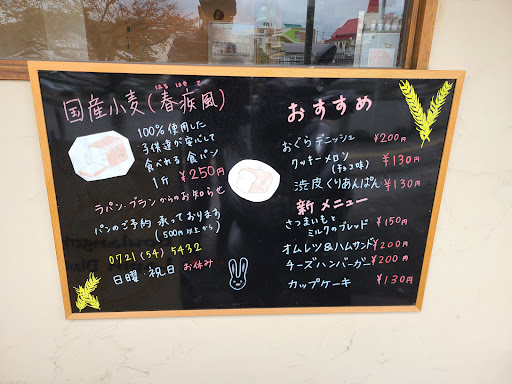 はる はや て
国産小麦(春疾風)
100%使用した
子供達が安心して
食べれる 食パン
1斤 ¥250円
ラパン・ブランからのお知らせ
パンのご予約 承っております
(500円以上から)
0721(54)5432
日曜 祝日 お休み
おすすめ
おぐらデニッシュ ¥200円
クッキーメロン
(チョコ味) ¥130円
渋皮くりあんぱん ¥130円
新メニュー
さつまいもと
ミルクのブレッド ¥150円
オムレツ&ハムサンド ¥200円
チーズハンバーガー ¥200円
カップケーキ ¥130円